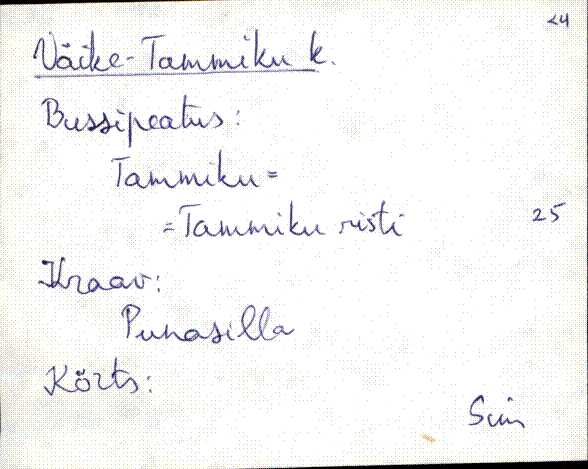 24
Väike-Tammiku k.
Bussipeatus:
Tammiku =
= Tammiku risti 25
Kraav:
Punasilla
Kõrts: